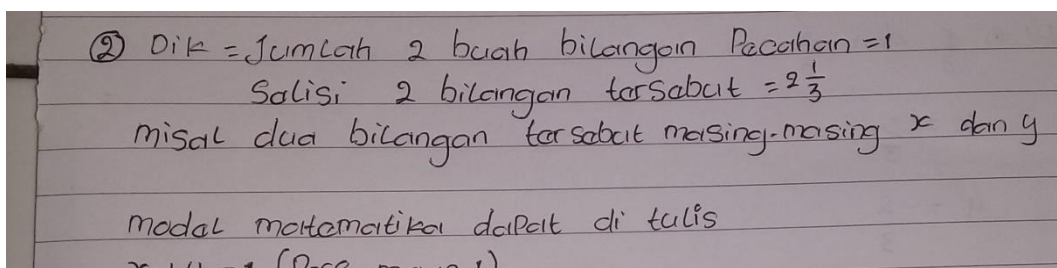 ② Dik = Jumlah 2 buah bilangan Pecahan = 1
Selisi 2 bilangan tersebut = 2 1/3
misal dua bilangan tersebut masing-masing x dan y
model matematika dapat di tulis